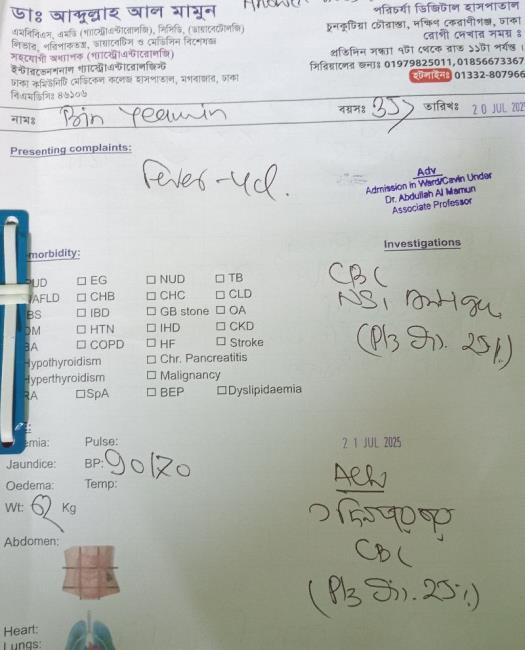 ডাঃ আব্দুল্লাহ আল মামুন
এমবিবিএস, এমডি (গ্যাস্ট্রোএন্টারোলজি), সিসিডি, (ডায়াবেটোলজি)
লিভার, পরিপাকতন্ত্র, ডায়াবেটিস ও মেডিসিন বিশেষজ্ঞ
সহযোগী অধ্যাপক (গ্যাস্ট্রোএন্টারোলজি)
ইন্টারভেনশনাল গ্যাস্ট্রোএন্টারোলজিস্ট
ঢাকা কমিউনিটি মেডিকেল কলেজ হাসপাতাল, মগবাজার, ঢাকা
বিএমডিসিঃ ৪৬১০৬
পরিচর্যা ডিজিটাল হাসপাতাল
চুনকুটিয়া চৌরাস্তা, দক্ষিণ কেরাণীগঞ্জ, ঢাকা
রোগী দেখার সময় ঃ
প্রতিদিন সন্ধ্যা ৭টা থেকে রাত ১১টা পর্যন্ত।
সিরিয়ালের জন্যঃ 01979825011, 01856673367
হটলাইনঃ 01332-807966
নামঃ Bin Yeamin বয়সঃ তারিখঃ 20 JUL 2025
Presenting complaints:
Fever - 4d.
Adv
Admission in Ward/Cavin Under
Dr. Abdullah Al Mamun
Associate Professor
Investigations
CBC
NS1 Antigen
(Plz ডি. 25%)
morbidity:
PUD □ EG □ NUD □ TB
NAFLD □ CHB □ CHC □ CLD
BS □ IBD □ GB stone □ OA
DM □ HTN □ IHD □ CKD
BA □ COPD □ HF □ Stroke
Hypothyroidism □ Chr. Pancreatitis
Hyperthyroidism □ Malignancy
RA □ SpA □ BEP □ Dyslipidaemia
emia: Pulse:
Jaundice: BP: 90/70
Oedema: Temp:
Wt: 62 Kg
Abdomen:
Heart:
Lungs:
21 JUL 2025
Adv
CBC
(Plz ডি. 25%)